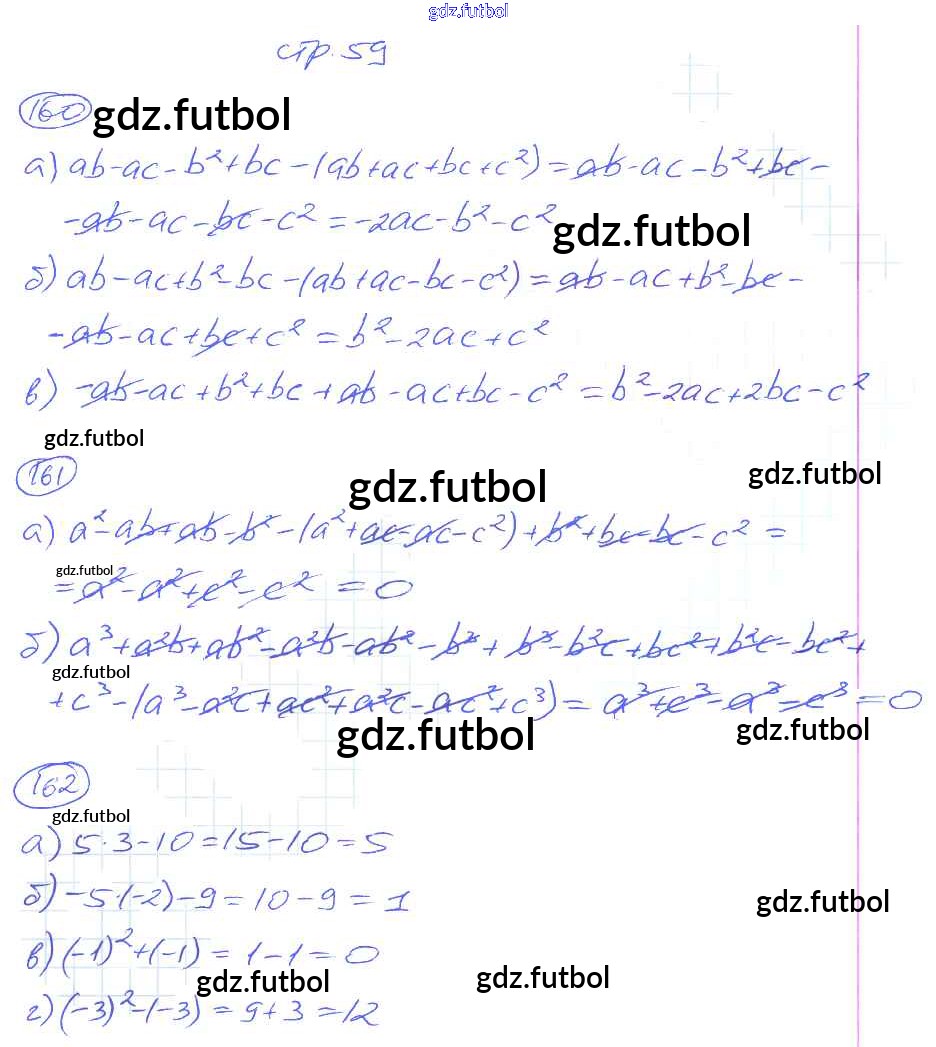 gdz.futbol
стр. 59
160 gdz.futbol
а) ab-ac-b²+bc-(ab+ac+bc+c²)=ab-ac-b²+bc-
-ab-ac-bc-c²=-2ac-b²-c²
gdz.futbol
б) ab-ac+b²-bc-(ab+ac-bc-c²)=ab-ac+b²-bc-
-ab-ac+bc+c²=b²-2ac+c²
в) -ab-ac+b²+bc+ab-ac+bc-c²=b²-2ac+2bc-c²
gdz.futbol
161
gdz.futbol
gdz.futbol
а) a²-ab+ab-b²-(a²+ac-ac-c²)+b²+bc-bc-c²=
gdz.futbol
=a²-a²+c²-c²=0
б) a³+a²b+ab²-a²b-ab²-b³+b³-b²c+bc²+b²c-bc²+
gdz.futbol
+c³-(a³-a²c+ac²+a²c-ac²+c³)=a³+c³-a³-c³=0
gdz.futbol
gdz.futbol
162
gdz.futbol
а) 5·3-10=15-10=5
б) -5·(-2)-9=10-9=1
gdz.futbol
в) (-1)²+(-1)=1-1=0
gdz.futbol
gdz.futbol
г) (-3)²-(-3)=9+3=12